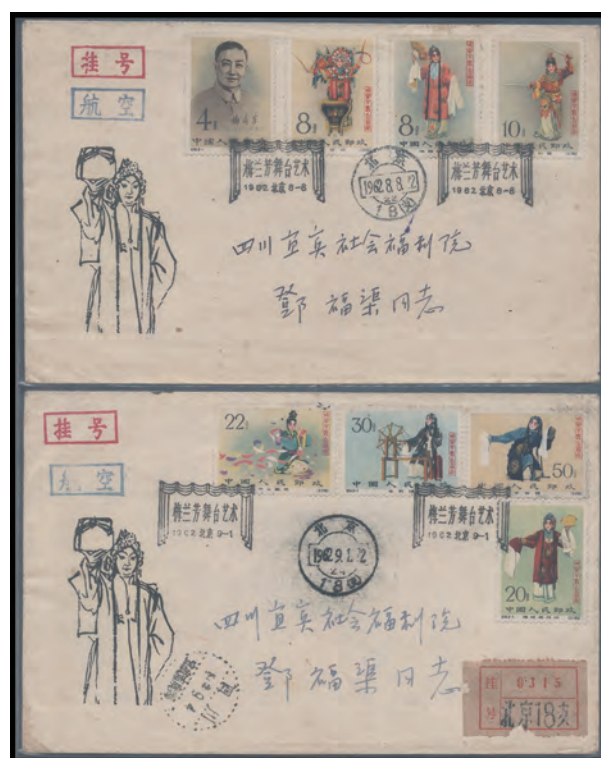 挂号
航空
4分
8分
8分
10分
中国人民邮政
中国人民邮政
中国人民邮政
中国人民邮政
梅兰芳舞台艺术
1962 北京 8-8
北京
1962.8.8.12
18(支)
梅兰芳舞台艺术
1962 北京 8-8
四川宜宾社会福利院
鄧福渠同志
挂号
航空
22分
30分
50分
中国人民邮政
中国人民邮政
中国人民邮政
梅兰芳舞台艺术
1962 北京 9-1
北京
1962.9.1.12
18(支)
梅兰芳舞台艺术
1962 北京 9-1
20分
中国人民邮政
四川宜宾社会福利院
鄧福渠同志
四川
挂号
0315
北京18支